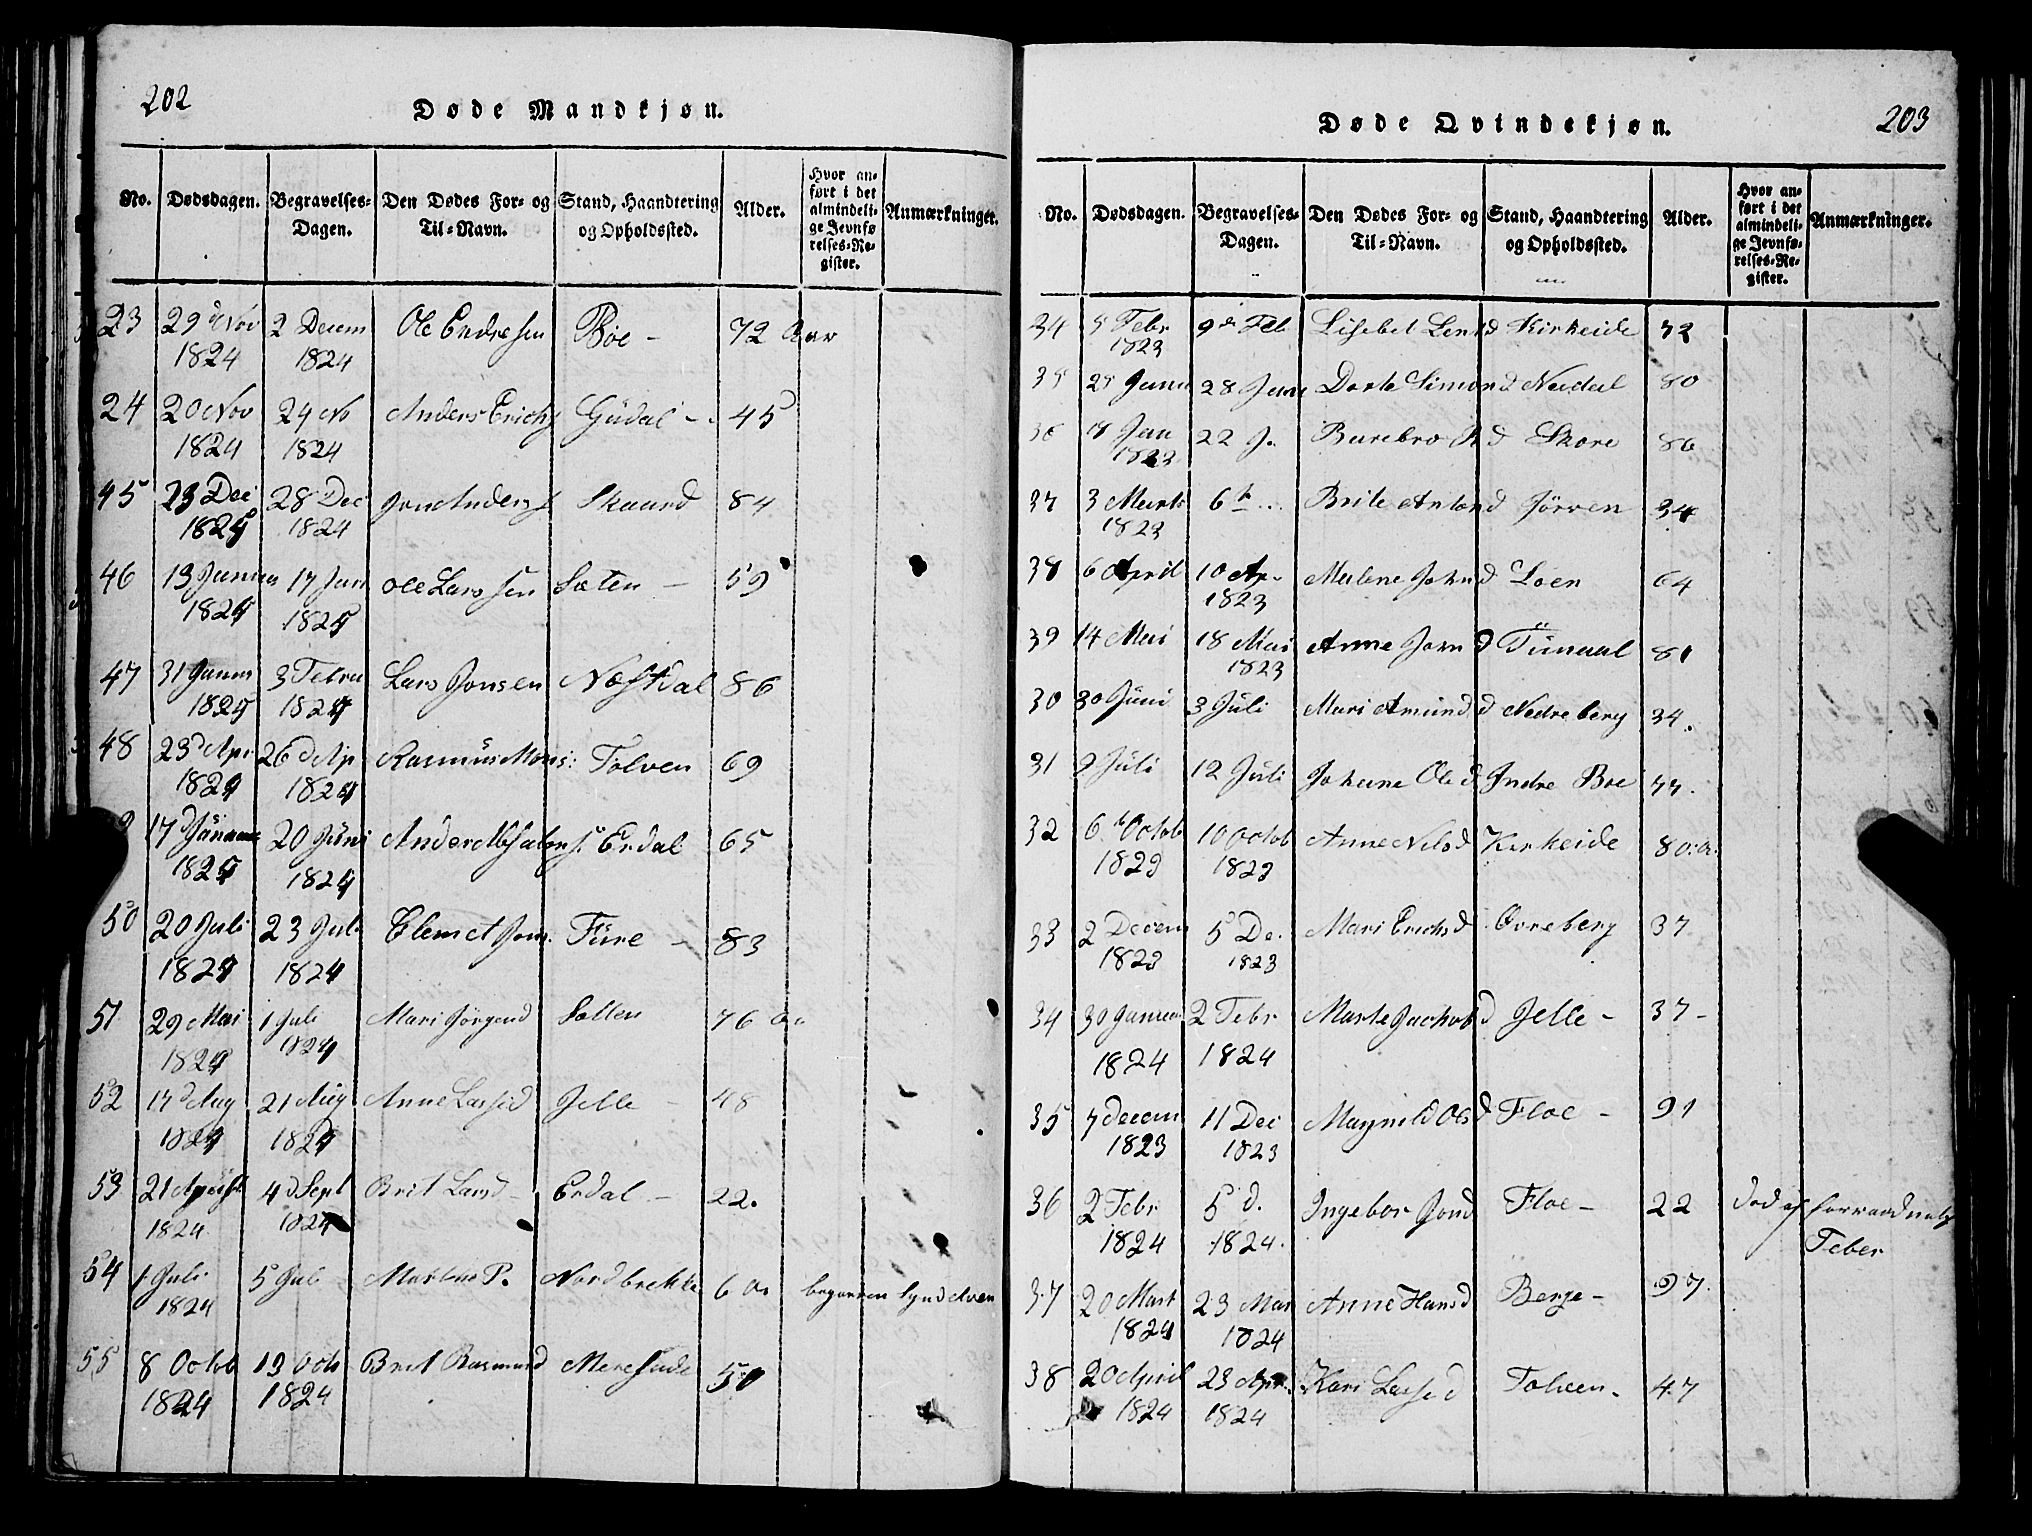 202
Døde Mandkjøn.
No. Dødsdagen. Begravelses-Dagen. Den Dødes For- og Til-Navn. Stand, Haandtering og Opholdssted. Alder. Hvor anført i det almindelige Jevnførelses-Register. Anmærkninger.
23 29 d Nov 2 Decem Ole Endresen Böe - 72 Aar
1824 1824
24 20 Nov 24 No Anders Erichs Güdal - 45
1824 1824
45 23 Dec 28 Dec Jon Anders Skaard 84
1824
46 13 Januar 17 Jan Ole Larssen Sæten - 59
1825 1825
47 31 Januar 3 Febru Lars Jonsen Næstdal 86
1825 1824
48 23 d Apr 26 d Ap Rasmüs Mons: Tolven 69
1824 1824
17 d 20 Jüni Anders Erdal 65
1824 1824
50 20 Juli 23 Juli Clemet Jons. Füre - 83
1824 1824
51 29 Mai 1 Juli Mari Jörgend Sætten 76
1824 1824
52 17 d Aug 21 Aug Anne Larsd Jelle - 48
1824 1824
53 21 4 d Sept Brit Larsd - Erdal - 22.
1824 1824
54 1 Juli 5 Juli P. Nordbrekke 6
1824
55 8 Octob 13 Octo Brit Rasmusd 50
1824 1824
Døde Qvindekjøn. 203
No. Dødsdagen. Begravelses-Dagen. Den Dødes For- og Til-Navn. Stand, Haandtering og Opholdssted. Alder. Hvor anført i det almindelige Jevnførelses-Register. Anmærkninger.
34 5 Febr 9 d Feb Lisebet d Kirkeide 72
1823
35 25 Janu 28 Janu Dorte Simond Nesdal 80
36 18 Jan 22 J. d Skore 86
1823
37 3 Marts 6 Brite d Jörven 34
1823
38 6 April 10 Ap. Malene Johnd Loen 64
1823
39 14 Mai 18 Mai Anne Jonsd Tünaal 81
1823
30 30 Juni 3 Juli Mari Amündd Nedreberg 34.
31 9 Juli 12 Juli Johanne Olsd Indre Böe
32 6 Octob 10 Octob Anne Nilsd Kirkeide 80: a.
1823 1823
33 2 Decem 5 De. Mari Erichsd Övreberg 37
1823 1823
34 30 Januar 2 Febr Marte Jachobd Jelle - 37 -
1824 1824
35 7 Decem 11 Dec Magnild Olsd Floe - 91
1823 1823
36 2 Febr 5 d. Ingebor Jonsd Floe - 22 död af Forraadnels
1824 1824. Feber
37 20 Mart 23 Mar Anne Hansd Berge - 97.
1824 1824
38 20 April 23 Apr. Kari Larsd Tolven. 47
1824 1824